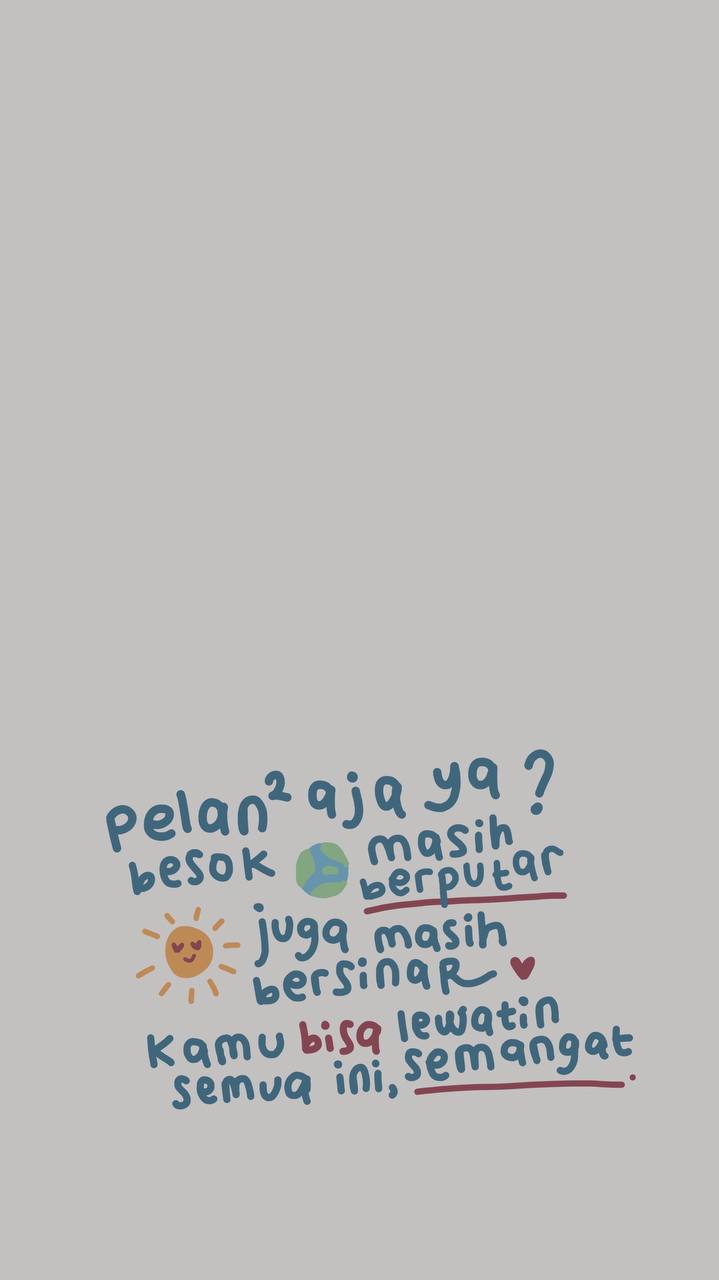 pelan² aja ya?
besok masih
berputar
juga masih
bersinar
kamu bisa lewatin
semua ini, semangat.